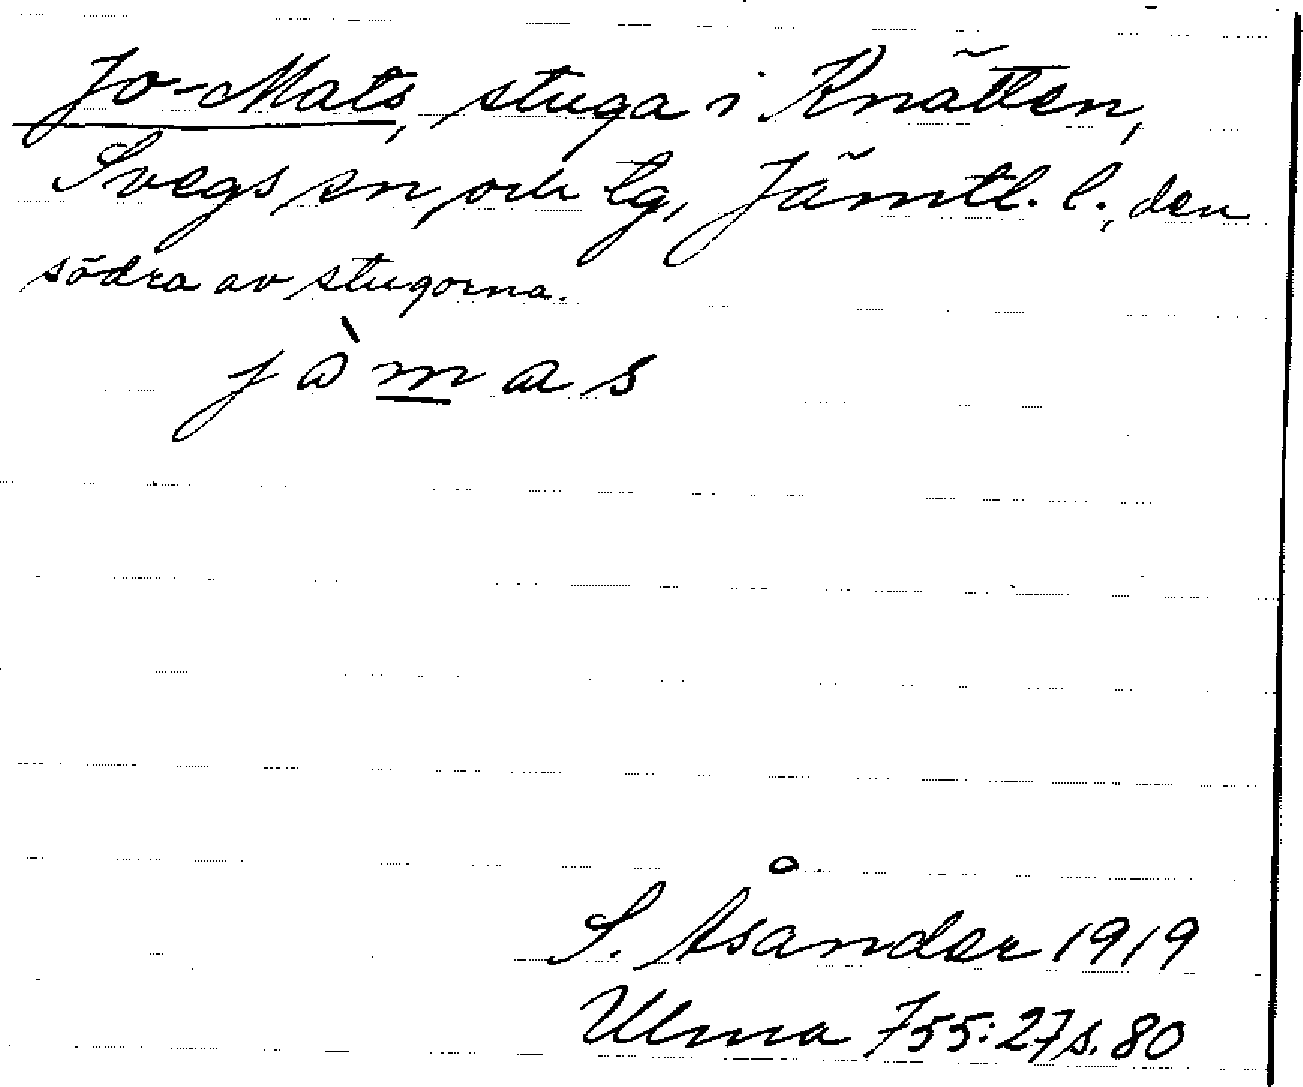 Jo-Mats, stuga i Knätten,
Svegs sn och tg, Jämtl. l., den
södra av stugorna.
jòmas
S. Åsander 1919
Ulma 755:27 s. 80